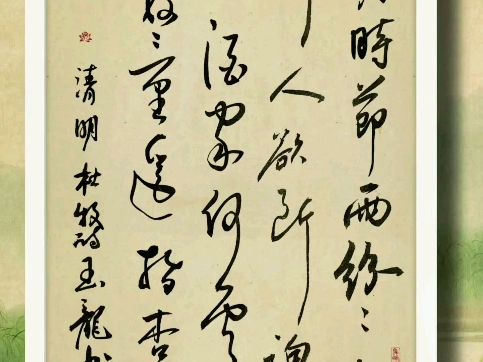 時節雨紛〻
人欲断魂
酒家何處
牧童遥指杏
清明杜牧詩玉龍书